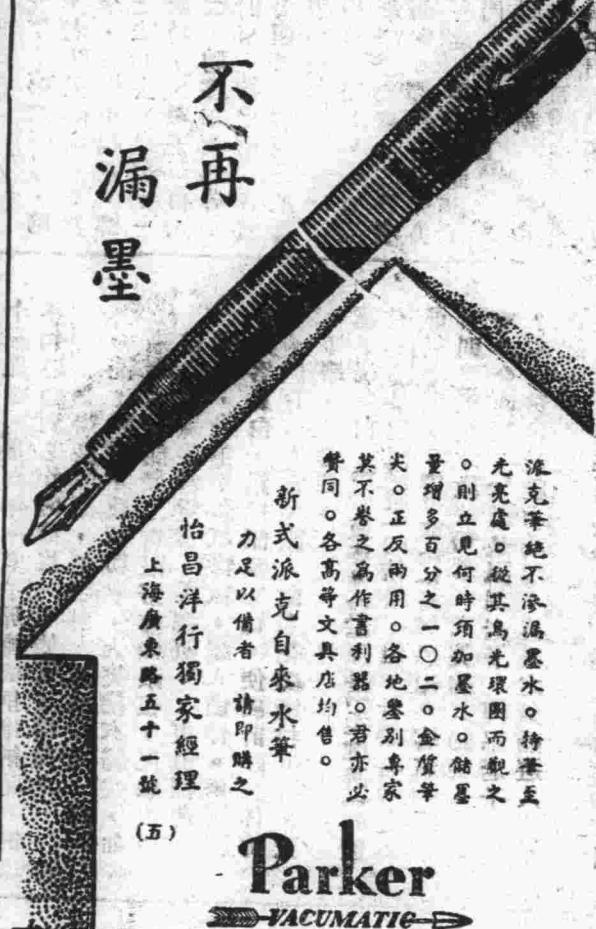 不再
漏墨
派克筆絕不滲漏墨水。持筆至
光亮處。從其烏光環圈而觀之
。則立見何時須加墨水。儲墨
量增多百分之一〇二。金質筆
尖。正反兩用。各地鑒別專家
莫不譽之爲作書利器。君亦必
贊同。各高等文具店均售。
新式派克自來水筆
力足以備者 請即購之
怡昌洋行獨家經理
上海廣東路五十一號
(五)
Parker
VACUMATIC